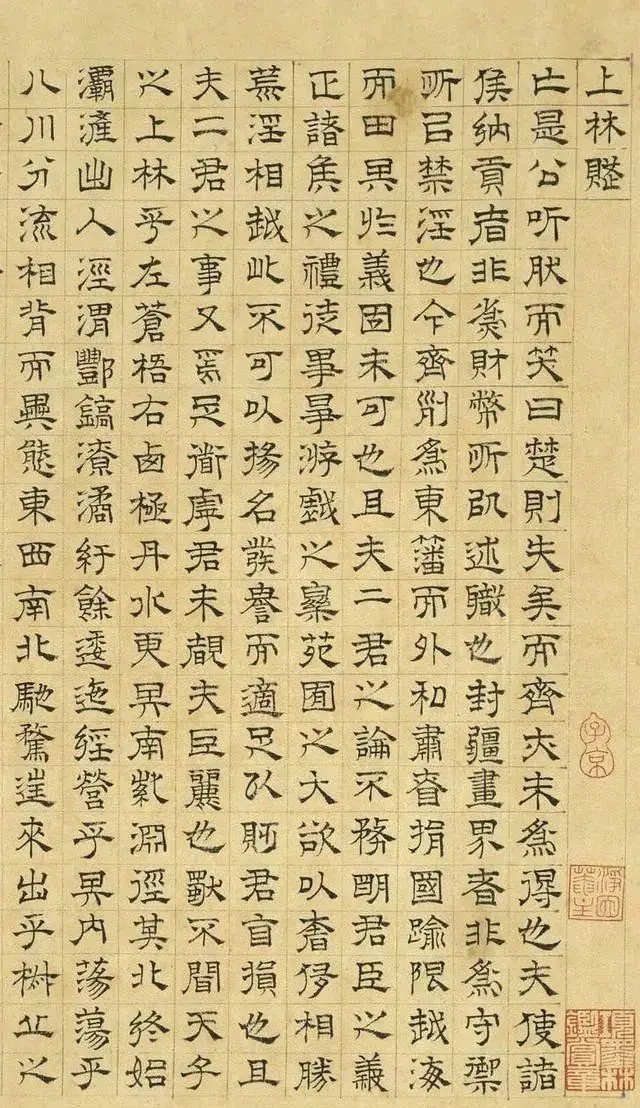 上林賦
亡是公听肰而笑曰楚則失矣而齊亦未為得也夫使諸
侯納貢者非為財幣所㠯述職也封疆畫界者非為守禦
所㠯禁淫也今齊列為東藩而外私肅慎捐國踰限越海
而田其於義固未可也且夫二君之論不務明君臣之義
正諸侯之禮徒事爭游戲之樂苑囿之大欲以奢侈相勝
荒淫相越此不可以揚名發譽而適足以貶君自損也且
夫二君之事又焉足道虖君未覩夫巨麗也獨不聞天子
之上林乎左蒼梧右西極丹水更其南紫淵徑其北終始
灞滻出入涇渭酆鎬潦潏紆餘逶迤經營乎其內蕩蕩乎
八川分流相背而異態東西南北馳騖往來出乎椒丘之
子京
項墨林鑑賞章